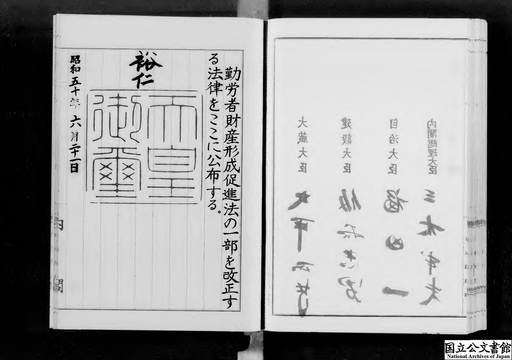 勤労者財産形成促進法の一部を改正す
る法律をここに公布する。
裕仁
天皇
御璽
昭和五十年六月二十一日
内閣
内閣総理大臣
自治大臣
建設大臣
大蔵大臣
国立公文書館
National Archives of Japan